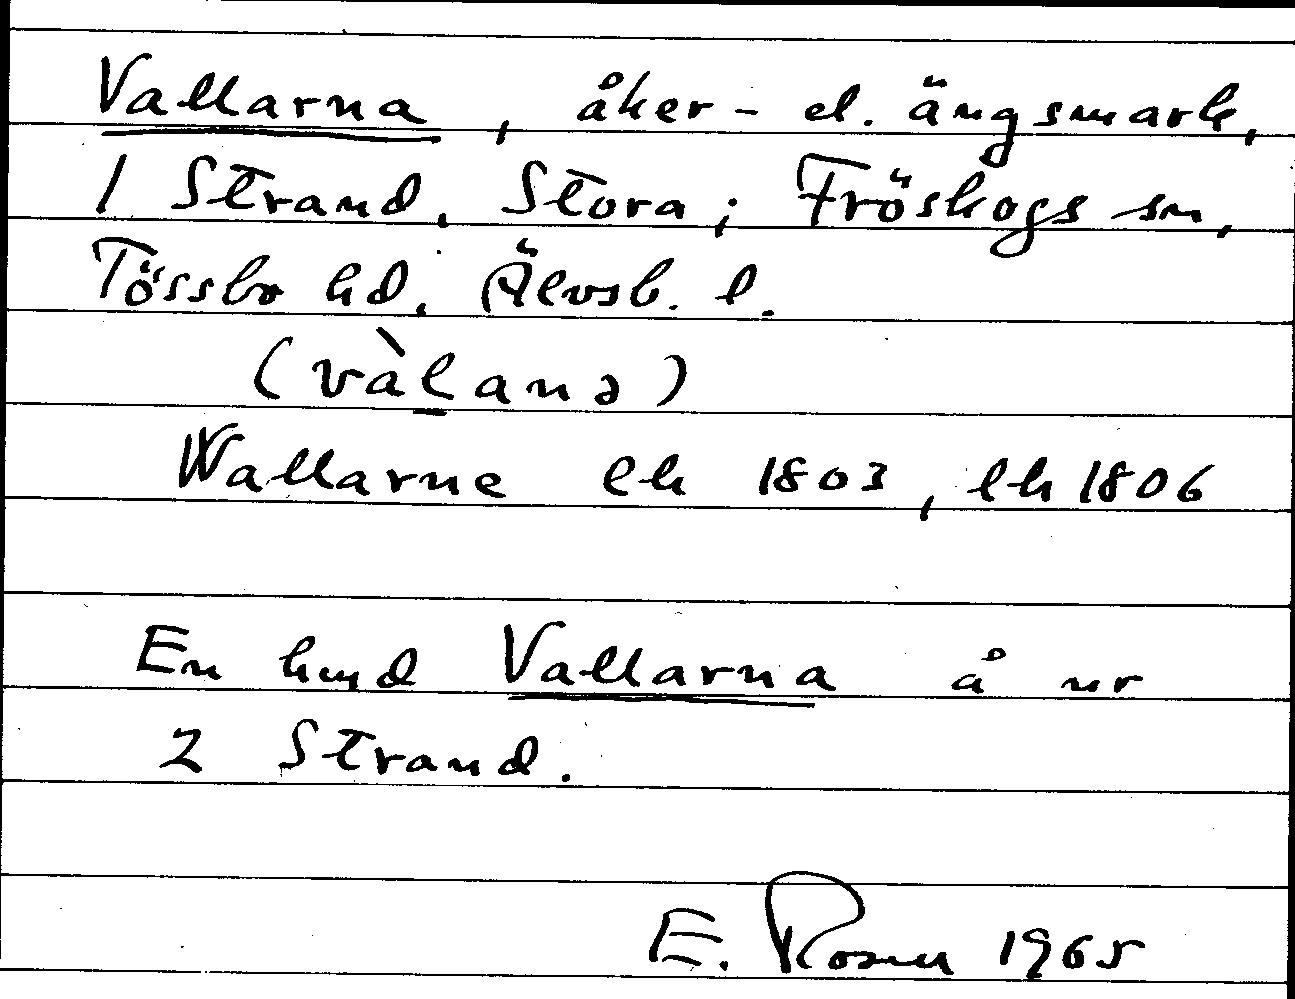 Vallarna, åker- el. ängsmark,
1 Strand, Stora; Fröskogs sn,
Tössbo hd, Älvsb. l.
(vàḻanə)
Wallarne lh 1803, lh 1806
En hmd Vallarna å nr
2 Strand.
E. Rosen 1965